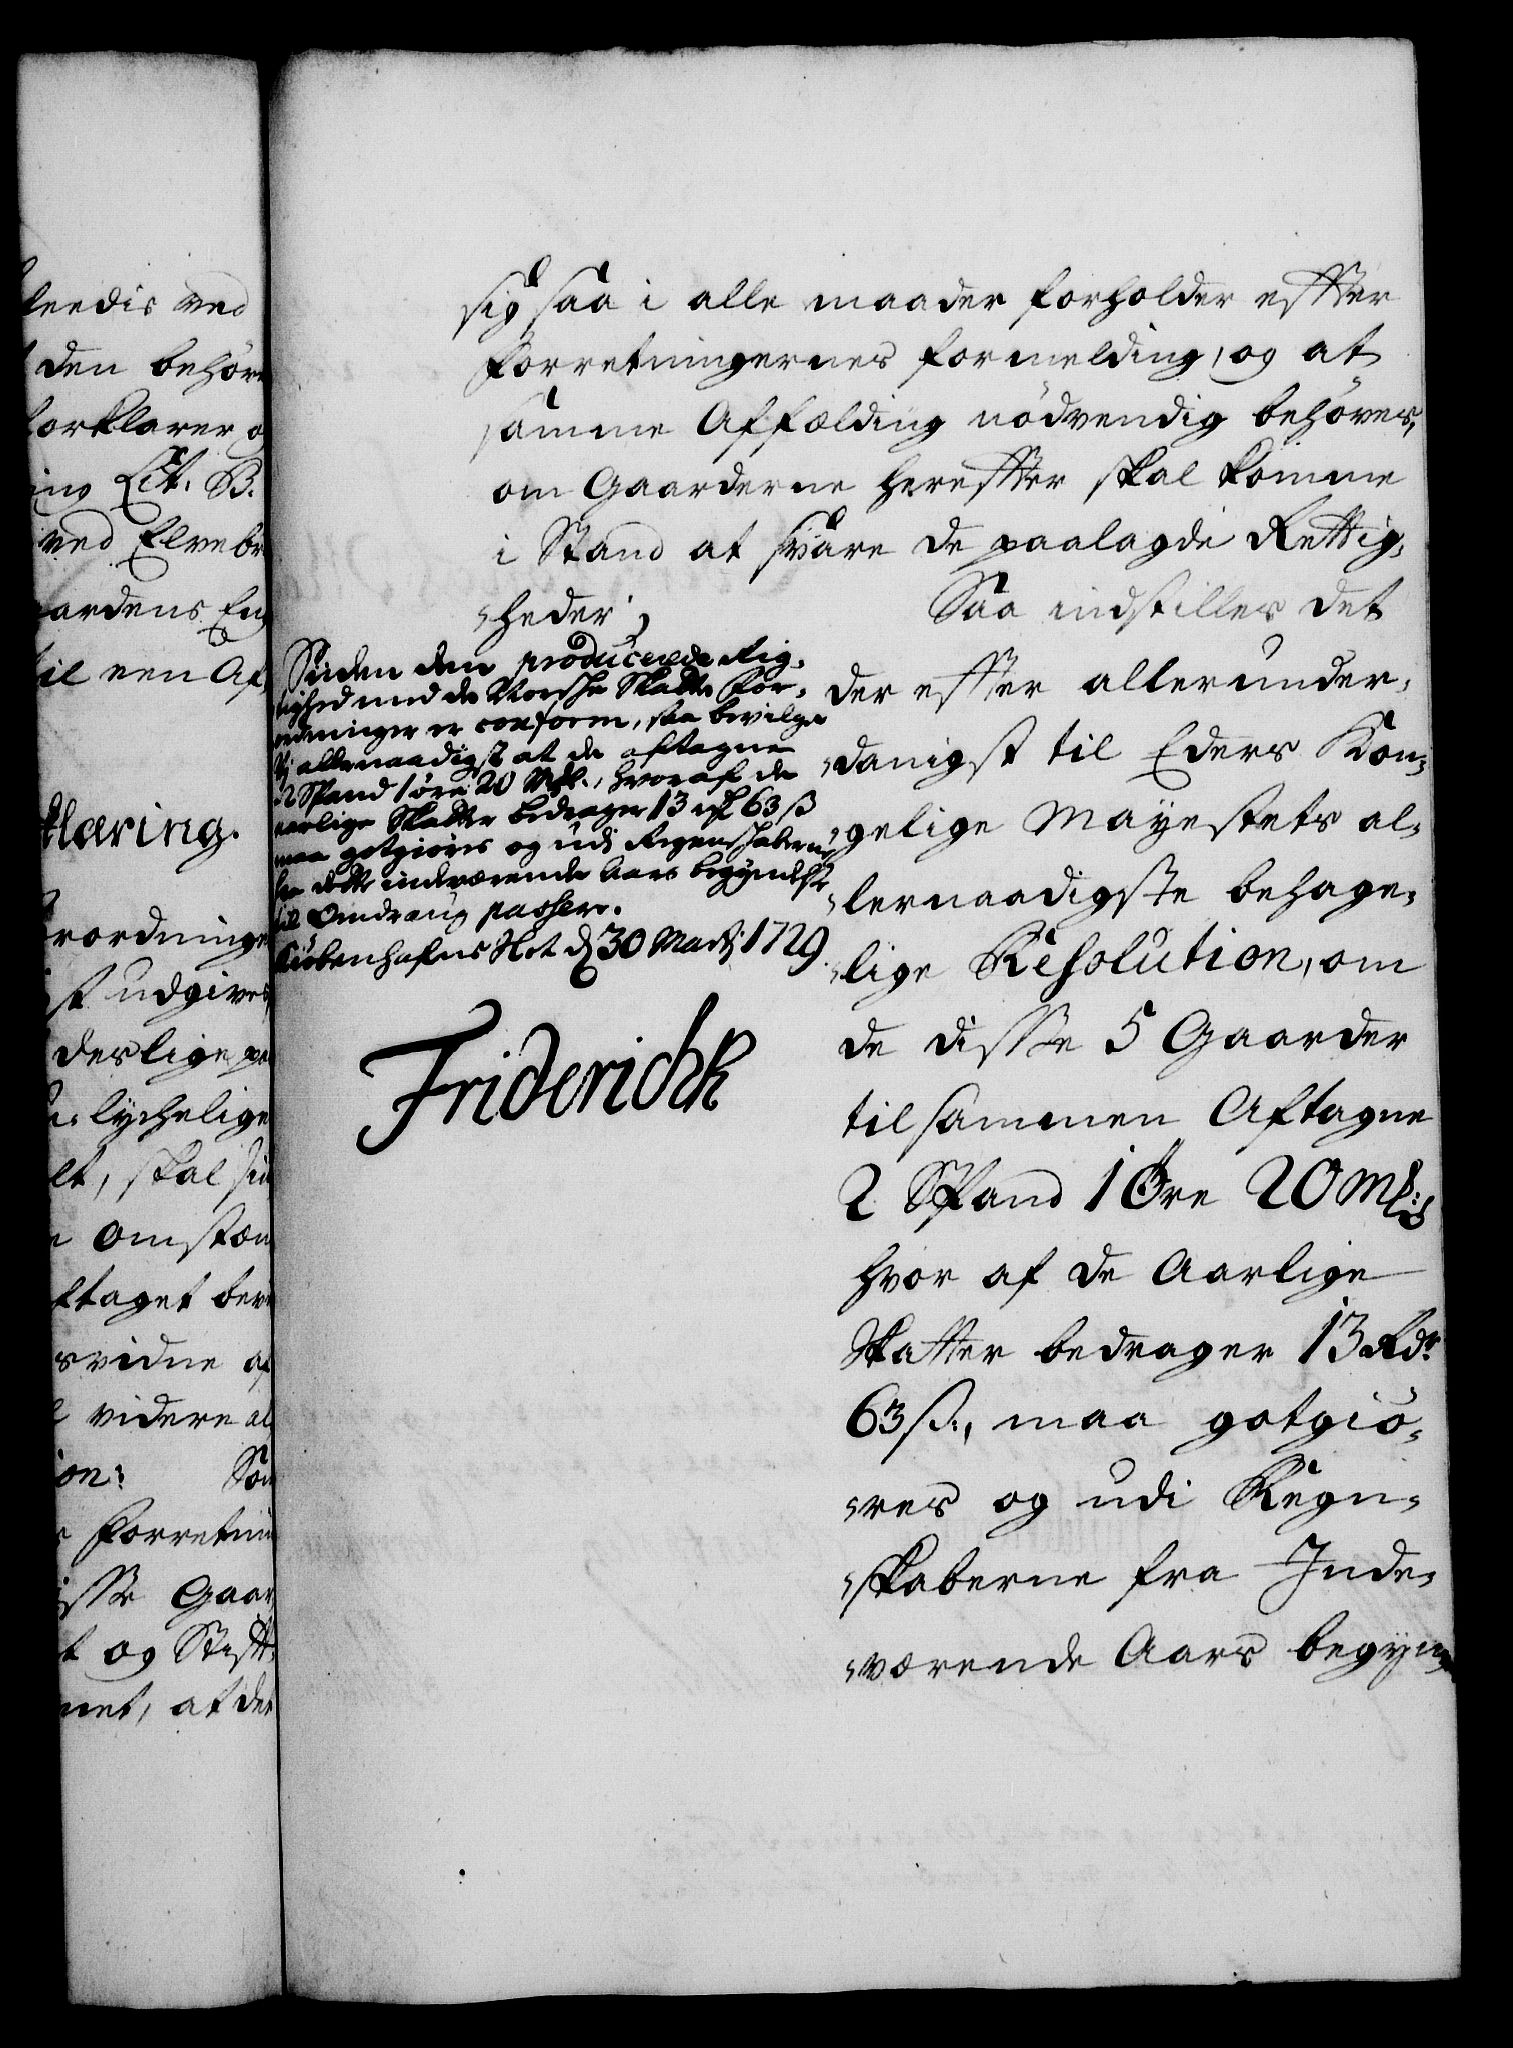 leedis ved
den behöre
forklarer o
ing Lit. B.
ved Elvebr
aardens Eng
til een Af
klæring.
rordninge
st udgives
deslige
lychelige
lt, skal
omstæn
ftaget bevi
svidne af
videre al
ion:
Forretnin
isse Gaar
t og Stift
net, at det
sig saa i alle maader forholder effter
Forretningernes formelding, og at
samme Affælding nödvendig behöves,
om Gaarderne hereffter skal komme
i Stand at svare de paalagde Rettig-
heder; Saa indstilles det
der effter allerunder-
danigst til Eders Kon-
gelige Mayestets al-
lernaadigste behage-
lige Resolution, om
de disse 5 Gaarder
tilsammen Aftagne
2 Spand 1 Öre 20 Mkl:
hvor af de Aarlige
Skatter bedrager 13 Rdr
63 ß:, maa gotgiö-
res og udi Regn-
skaberne fra Inde-
værende Aars begyn-
Siiden den producerede Rig-
tighed med de Norske Skatte For-
ordninger er conform, saa bevilge
Vj allernaadigst at de aftagne
2 Spand 1 öre 20 Mkl., hvoraf de
aarlige Skatter bedrager 13 rdl 63 ß
maa gotgiöris og udi Regenskaberne
fra dette indeværende Aars begyndelse
til Omdraug passere.
Kiöbenhafns Slot d 30 Martj 1729.
Friderich R